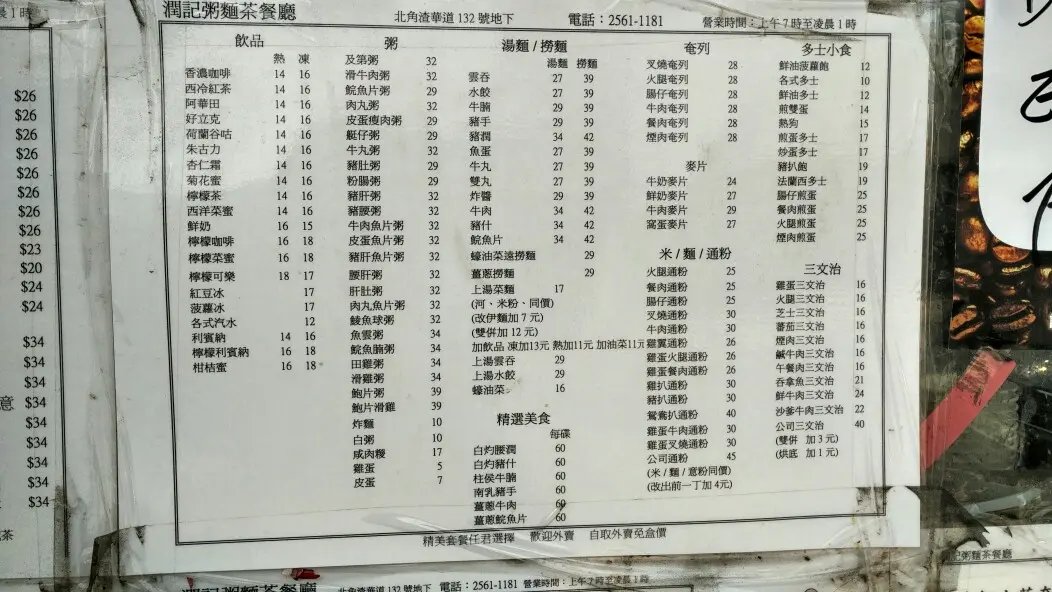 潤記粥麵茶餐廳 北角渣華道132號地下 電話：2561-1181 營業時間：上午7時至凌晨1時
飲品
熱 凍
香濃咖啡 14 16
西冷紅茶 14 16
阿華田 14 16
好立克 14 16
荷蘭谷咕 14 16
朱古力 14 16
杏仁霜 14 16
菊花蜜 14 16
檸檬茶 14 16
西洋菜蜜 14 16
鮮奶 16 15
檸檬咖啡 16 18
檸檬菜蜜 16 18
檸檬可樂 18 17
紅豆冰 17
菠蘿冰 17
各式汽水 12
利賓納 14 16
檸檬利賓納 16 18
柑桔蜜 16 18
粥
及第粥 32
滑牛肉粥 32
鯇魚片粥 29
肉丸粥 32
皮蛋瘦肉粥 29
艇仔粥 29
牛丸粥 32
豬肚粥 29
粉腸粥 29
豬肝粥 32
豬腰粥 32
牛肉魚片粥 32
皮蛋魚片粥 32
豬肝魚片粥 32
腰肝粥 32
肝肚粥 32
肉丸魚片粥 32
鯪魚球粥 32
魚雲粥 34
鯇魚腩粥 34
田雞粥 34
滑雞粥 34
鮑片粥 39
鮑片滑雞 39
炸麵 10
白粥 10
咸肉糭 17
雞蛋 5
皮蛋 7
湯麵 / 撈麵
湯麵 撈麵
雲吞 27 39
水餃 27 39
牛腩 29 39
豬手 29 39
豬潤 34 42
魚蛋 27 39
牛丸 27 39
雙丸 27 39
炸醬 29 39
牛肉 34 42
豬什 34 42
鯇魚片 34 42
蠔油菜遠撈麵 29
薑蔥撈麵 29
上湯菜麵 17
(河、米粉、同價)
(改伊麵加 7 元)
(雙併加 12 元)
加飲品 凍加13元 熱加11元 加油菜11元
上湯雲吞 29
上湯水餃 29
蠔油菜 16
精選美食
每碟
白灼腰潤 60
白灼豬什 60
柱侯牛腩 60
南乳豬手 60
薑蔥牛肉 60
薑蔥鯇魚片 60
奄列
叉燒奄列 28
火腿奄列 28
腸仔奄列 28
牛肉奄列 28
餐肉奄列 28
煙肉奄列 28
麥片
牛奶麥片 24
鮮奶麥片 27
牛肉麥片 29
窩蛋麥片 27
米 / 麵 / 通粉
火腿通粉 25
餐肉通粉 25
腸仔通粉 25
叉燒通粉 30
牛肉通粉 30
雞翼通粉 26
雞蛋火腿通粉 26
雞蛋餐肉通粉 26
雞扒通粉 30
豬扒通粉 30
鴛鴦扒通粉 40
雞蛋牛肉通粉 30
雞蛋叉燒通粉 30
公司通粉 45
(米 / 麵 / 意粉同價)
(改出前一丁加 4元)
多士小食
鮮油菠蘿飽 12
各式多士 10
鮮油多士 12
煎雙蛋 14
熱狗 15
煎蛋多士 17
炒蛋多士 17
豬扒飽 19
法蘭西多士 19
腸仔煎蛋 25
餐肉煎蛋 25
火腿煎蛋 25
煙肉煎蛋 25
三文治
雞蛋三文治 16
火腿三文治 16
芝士三文治 16
蕃茄三文治 16
煙肉三文治 16
鹹牛肉三文治 16
午餐肉三文治 16
吞拿魚三文治 21
鮮牛肉三文治 24
沙爹牛肉三文治 22
公司三文治 40
(雙併 加 3 元)
(烘底 加 1 元)
精美套餐任君選擇 歡迎外賣 自取外賣免盒價
$26
$26
$26
$26
$26
$26
$26
$23
$20
$24
$24
$34
$34
$34
意 $34
$34
$34
$34
$34
$34
潤記粥麵茶餐廳 北角渣華道 132 號地下 電話：2561-1181 營業時間：上午7時至凌晨1時
記粥麵茶餐廳